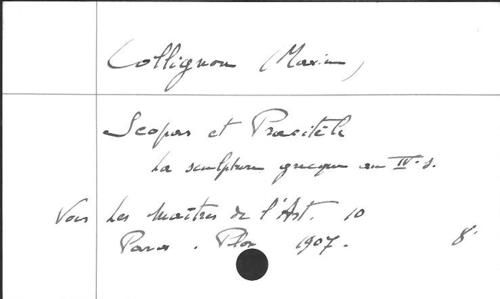 Collignon (Maxime)
Scopas et Praxitèle
La sculpture grecque au IVe s.
Voir Les Maîtres de l'Art. 10
Paris. Plon 1907. 8°